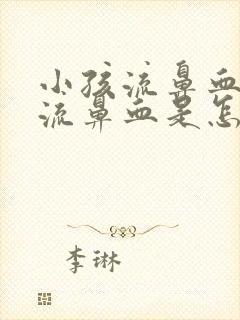 小孩流鼻血
流鼻血是怎
李琳